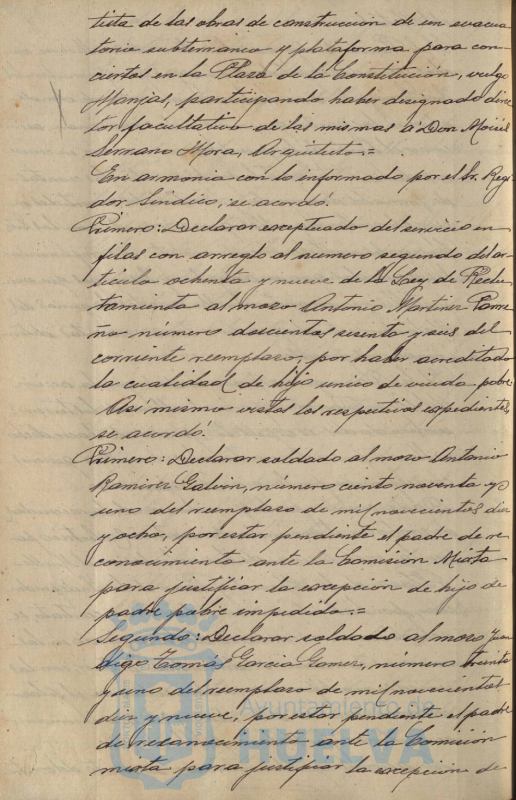 tista de las obras de construcción de un evacua
torio subterraneo y plataforma para con-
ciertos en la Plaza de la Constitución, vulgo
Monjas, participando haber designado direc
tor facultativo de las mismas á Don Moisés
Serrano Mora, Arquitecto.=
En armonia con lo informado por el Sr. Regi
dor Sindico, se acordó:
Primero: Declarar exceptuado del servicio en
filas con arreglo al numero segundo del ar-
ticulo ochenta y nueve de la Ley de Reclu-
tamiento al mozo Antonio Martinez
número doscientos sesenta y seis del
corriente reemplazo, por haber acreditado
la cualidad de hijo unico de viuda pobre.
Asi mismo vistos los respectivos expedientes,
se acordó:
Primero: Declarar soldado al mozo Antonio
Ramirez Galván, número ciento noventa y
uno del reemplazo de mil novecientos diez
y ocho, por estar pendiente el padre de re
conocimiento ante la Comisión Mixta
para justificar la excepción de hijo de
padre pobre impedido.=
Segundo: Declarar soldado al mozo
Tomás Garcia Gomez, número treinta
y uno del reemplazo de mil novecientos
diez y nueve, por estar pendiente el padre
de reconocimiento ante la Comisión
mixta para justificar la excepción de
Ayuntamiento de
HUELVA